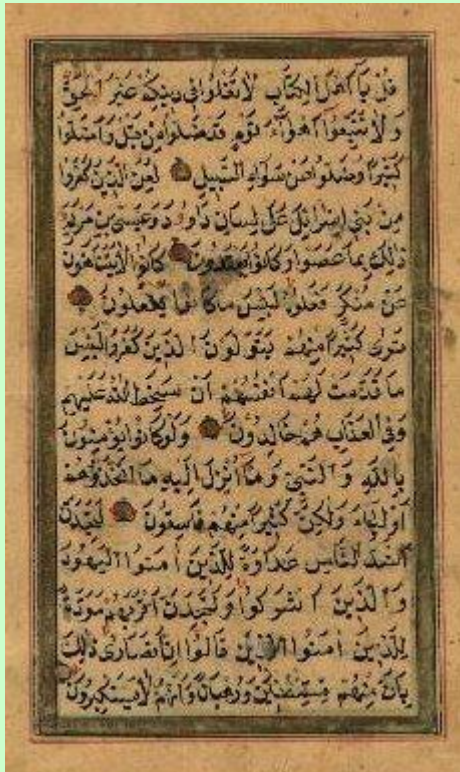 قُلْ يَا أَهْلَ الْكِتَابِ لَا تَغْلُوا فِي دِينِكُمْ غَيْرَ الْحَقِّ
وَلَا تَتَّبِعُوا أَهْوَاءَ قَوْمٍ قَدْ ضَلُّوا مِنْ قَبْلُ وَأَضَلُّوا
كَثِيرًا وَضَلُّوا عَنْ سَوَاءِ السَّبِيلِ لُعِنَ الَّذِينَ كَفَرُوا
مِنْ بَنِي إِسْرَائِيلَ عَلَى لِسَانِ دَاوُودَ وَعِيسَى بْنِ مَرْيَمَ
ذَلِكَ بِمَا عَصَوْا وَكَانُوا يَعْتَدُونَ كَانُوا لَا يَتَنَاهَوْنَ
عَنْ مُنْكَرٍ فَعَلُوهُ لَبِئْسَ مَا كَانُوا يَفْعَلُونَ
تَرَى كَثِيرًا مِنْهُمْ يَتَوَلَّوْنَ الَّذِينَ كَفَرُوا لَبِئْسَ
مَا قَدَّمَتْ لَهُمْ أَنْفُسُهُمْ أَنْ سَخِطَ اللَّهُ عَلَيْهِمْ
وَفِي الْعَذَابِ هُمْ خَالِدُونَ وَلَوْ كَانُوا يُؤْمِنُونَ
بِاللَّهِ وَالنَّبِيِّ وَمَا أُنْزِلَ إِلَيْهِ مَا اتَّخَذُوهُمْ
أَوْلِيَاءَ وَلَكِنَّ كَثِيرًا مِنْهُمْ فَاسِقُونَ لَتَجِدَنَّ
أَشَدَّ النَّاسِ عَدَاوَةً لِلَّذِينَ آمَنُوا الْيَهُودَ
وَالَّذِينَ أَشْرَكُوا وَلَتَجِدَنَّ أَقْرَبَهُمْ مَوَدَّةً
لِلَّذِينَ آمَنُوا الَّذِينَ قَالُوا إِنَّا نَصَارَى ذَلِكَ
بِأَنَّ مِنْهُمْ قِسِّيسِينَ وَرُهْبَانًا وَأَنَّهُمْ لَا يَسْتَكْبِرُونَ